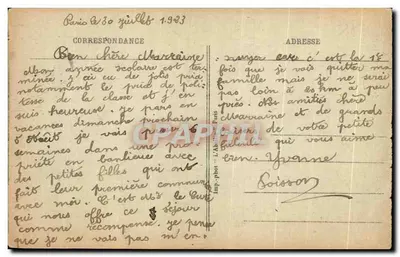 Paris le 30 juillet 1923
CORRESPONDANCE
ADRESSE
Bien chère Marraine
Mon année scolaire est ter
minée. j'ai eu de jolis prix
notamment le prix de poli
tesse de la classe et j'en
suis heureuse. je pars en
vacances dimanche prochain
5 Août je vais passer
semaines dans une pro
priété en banlieue avec
des petites filles qui ont
fait leur première commun
avec moi. C'est Mr le Curé
qui nous offre ce séjour
comme récompense. je pense
que je ne vais pas m'en
nuyer car c'est la 1ère
fois que je vais quitter ma
famille mais je ne serai
pas loin à 25 km à peu
près. Mes amitiés chère
Marraine et de grands
de votre petite
filleule qui vous aime
bien. Yvonne
Poisson
CPARAMA.COM
Imp.-phot.